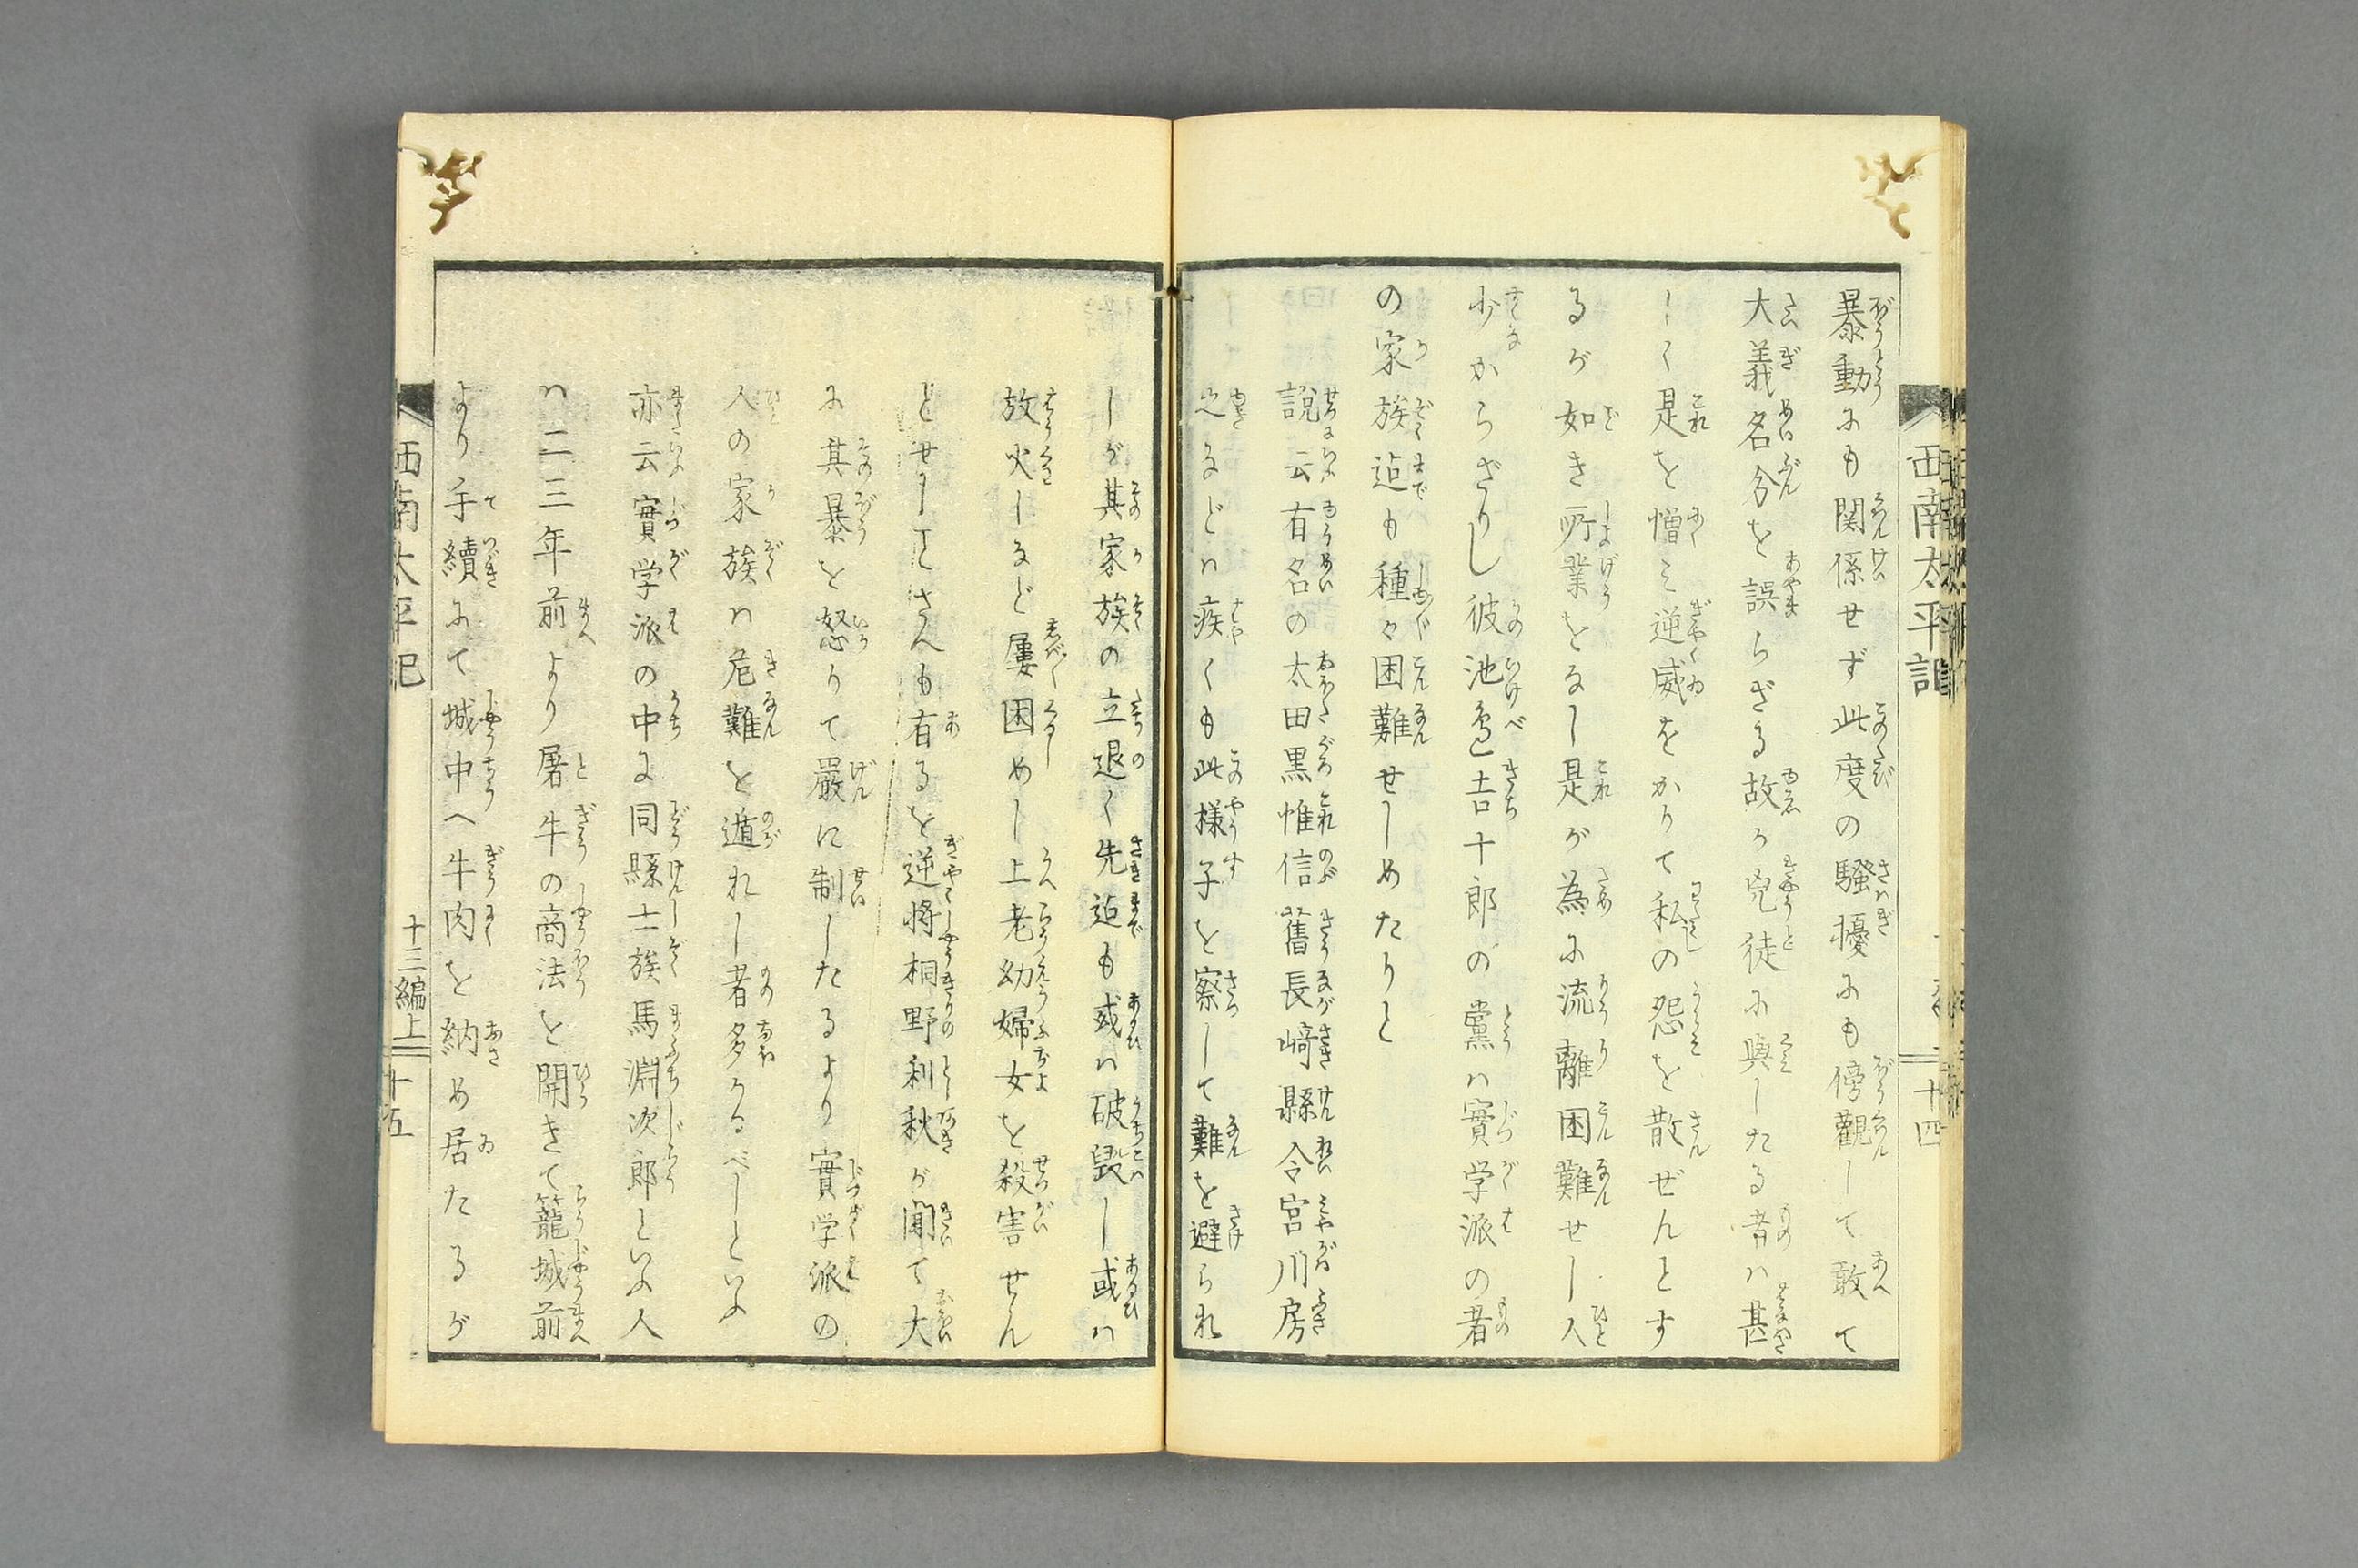 西南太平記
十四
暴動にも関係せず此度の騒擾にも傍觀して敢て
大義名分を誤らざる故か兇徒に與したる者ハ甚
しく是を憎ミ逆威をかりて私の怨を散ぜんとす
るが如き所業をなし是が為に流離困難せし人
少からざりし彼池邉吉十郎の黨ハ實学派の者
の家族迠も種々困難せしめたりと
説云有名の太田黒惟信舊長﨑縣令宮川房
之などハ疾くも此様子を察して難を避られ
しが其家族の立退く先迠も或ハ破毀し或ハ
放火しなど屢困めし上老幼婦女を殺害せん
とせしことさへも有るを逆将桐野利秋が聞て大
に其暴を怒りて嚴に制したるより實学派の
人の家族ハ危難を遁れし者多かるべしといふ
亦云實学派の中に同縣士族馬淵次郎といふ人
ハ二三年前より屠牛の商法を開きて籠城前
より手續にて城中へ牛肉を納め居たるが
西南太平記
十三編上
十五